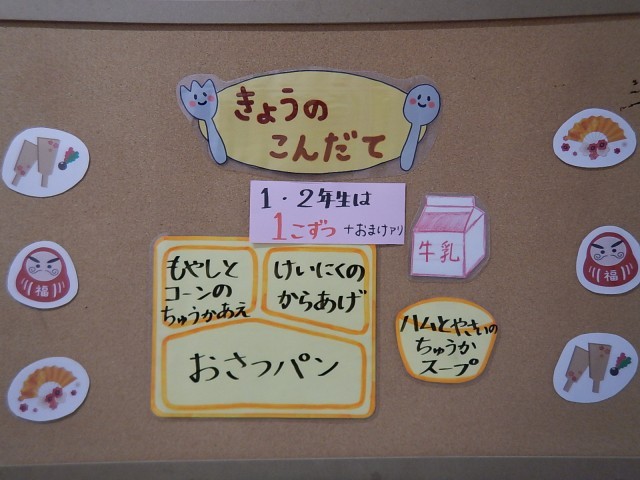 きょうの
こんだて
1・2年生は
1こずつ +おまけアリ
牛乳
もやしと
コーンの
ちゅうかあえ
けいにくの
からあげ
おさつパン
ハムとやさいの
ちゅうか
スープ
福
福